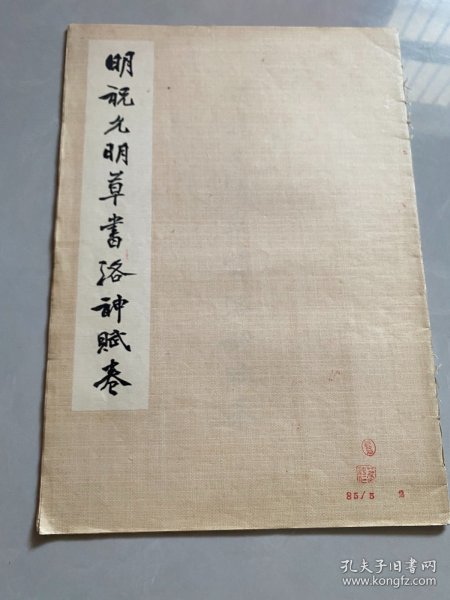 明祝允明草書洛神賦卷
85/5 2
孔夫子旧书网
www.kongfz.com